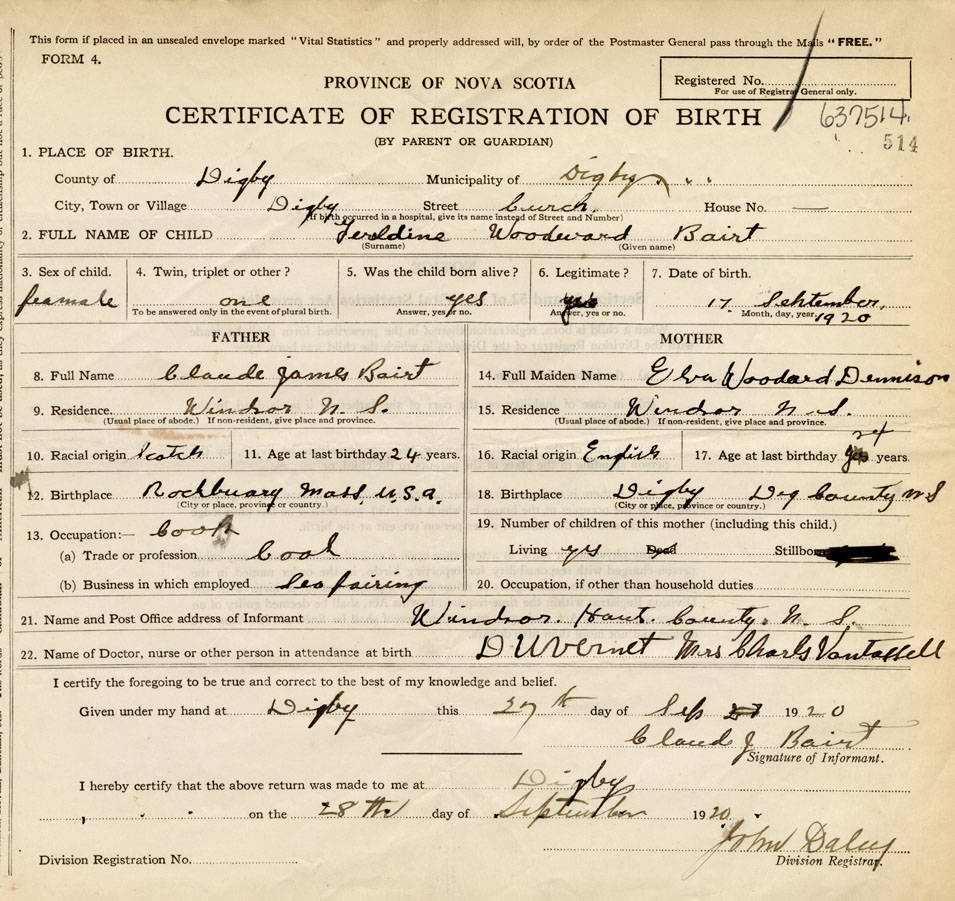 This form if placed in an unsealed envelope marked "Vital Statistics" and properly addressed will, by order of the Postmaster General pass through the Mails "FREE."
FORM 4.
Registered No.
For use of Registrar General only.
PROVINCE OF NOVA SCOTIA
CERTIFICATE OF REGISTRATION OF BIRTH
637514
(BY PARENT OR GUARDIAN)
514
1. PLACE OF BIRTH.
County of Digby Municipality of Digby
City, Town or Village Digby Street Curch. House No. —
(If birth occurred in a hospital, give its name instead of Street and Number)
2. FULL NAME OF CHILD Jeraldine Woodward Bairt
(Surname) (Given name)
3. Sex of child. feamale
4. Twin, triplet or other? one
To be answered only in the event of plural birth.
5. Was the child born alive? yes
Answer, yes or no.
6. Legitimate? yes
Answer, yes or no.
7. Date of birth. 17 September. 1920
Month, day, year
FATHER
8. Full Name Claude James Bairt
9. Residence. Windsor N. S.
(Usual place of abode.) If non-resident, give place and province.
10. Racial origin Scotch 11. Age at last birthday 24 years.
12. Birthplace Rockbuary Mass. U.S.A.
(City or place, province or country.)
13. Occupation:— Cook
(a) Trade or profession Cook
(b) Business in which employed Sea fairing
MOTHER
14. Full Maiden Name Elva Woodard Dennison
15. Residence Windsor N.S.
(Usual place of abode.) If non-resident, give place and province.
16. Racial origin English 17. Age at last birthday 24 years.
18. Birthplace Digby Dig County N S
(City or place, province or country.)
19. Number of children of this mother (including this child.)
Living yes Dead Stillborn
20. Occupation, if other than household duties
21. Name and Post Office address of Informant Windsor. Hant. County. N. S.
22. Name of Doctor, nurse or other person in attendance at birth DUVernet Mrs Charls Vantassell
I certify the foregoing to be true and correct to the best of my knowledge and belief.
Given under my hand at Digby this 27th day of Sep 1920
Claud J Bairt
Signature of Informant.
I hereby certify that the above return was made to me at Digby
on the 28th day of September 1920.
John Daley
Division Registrar.
Division Registration No.